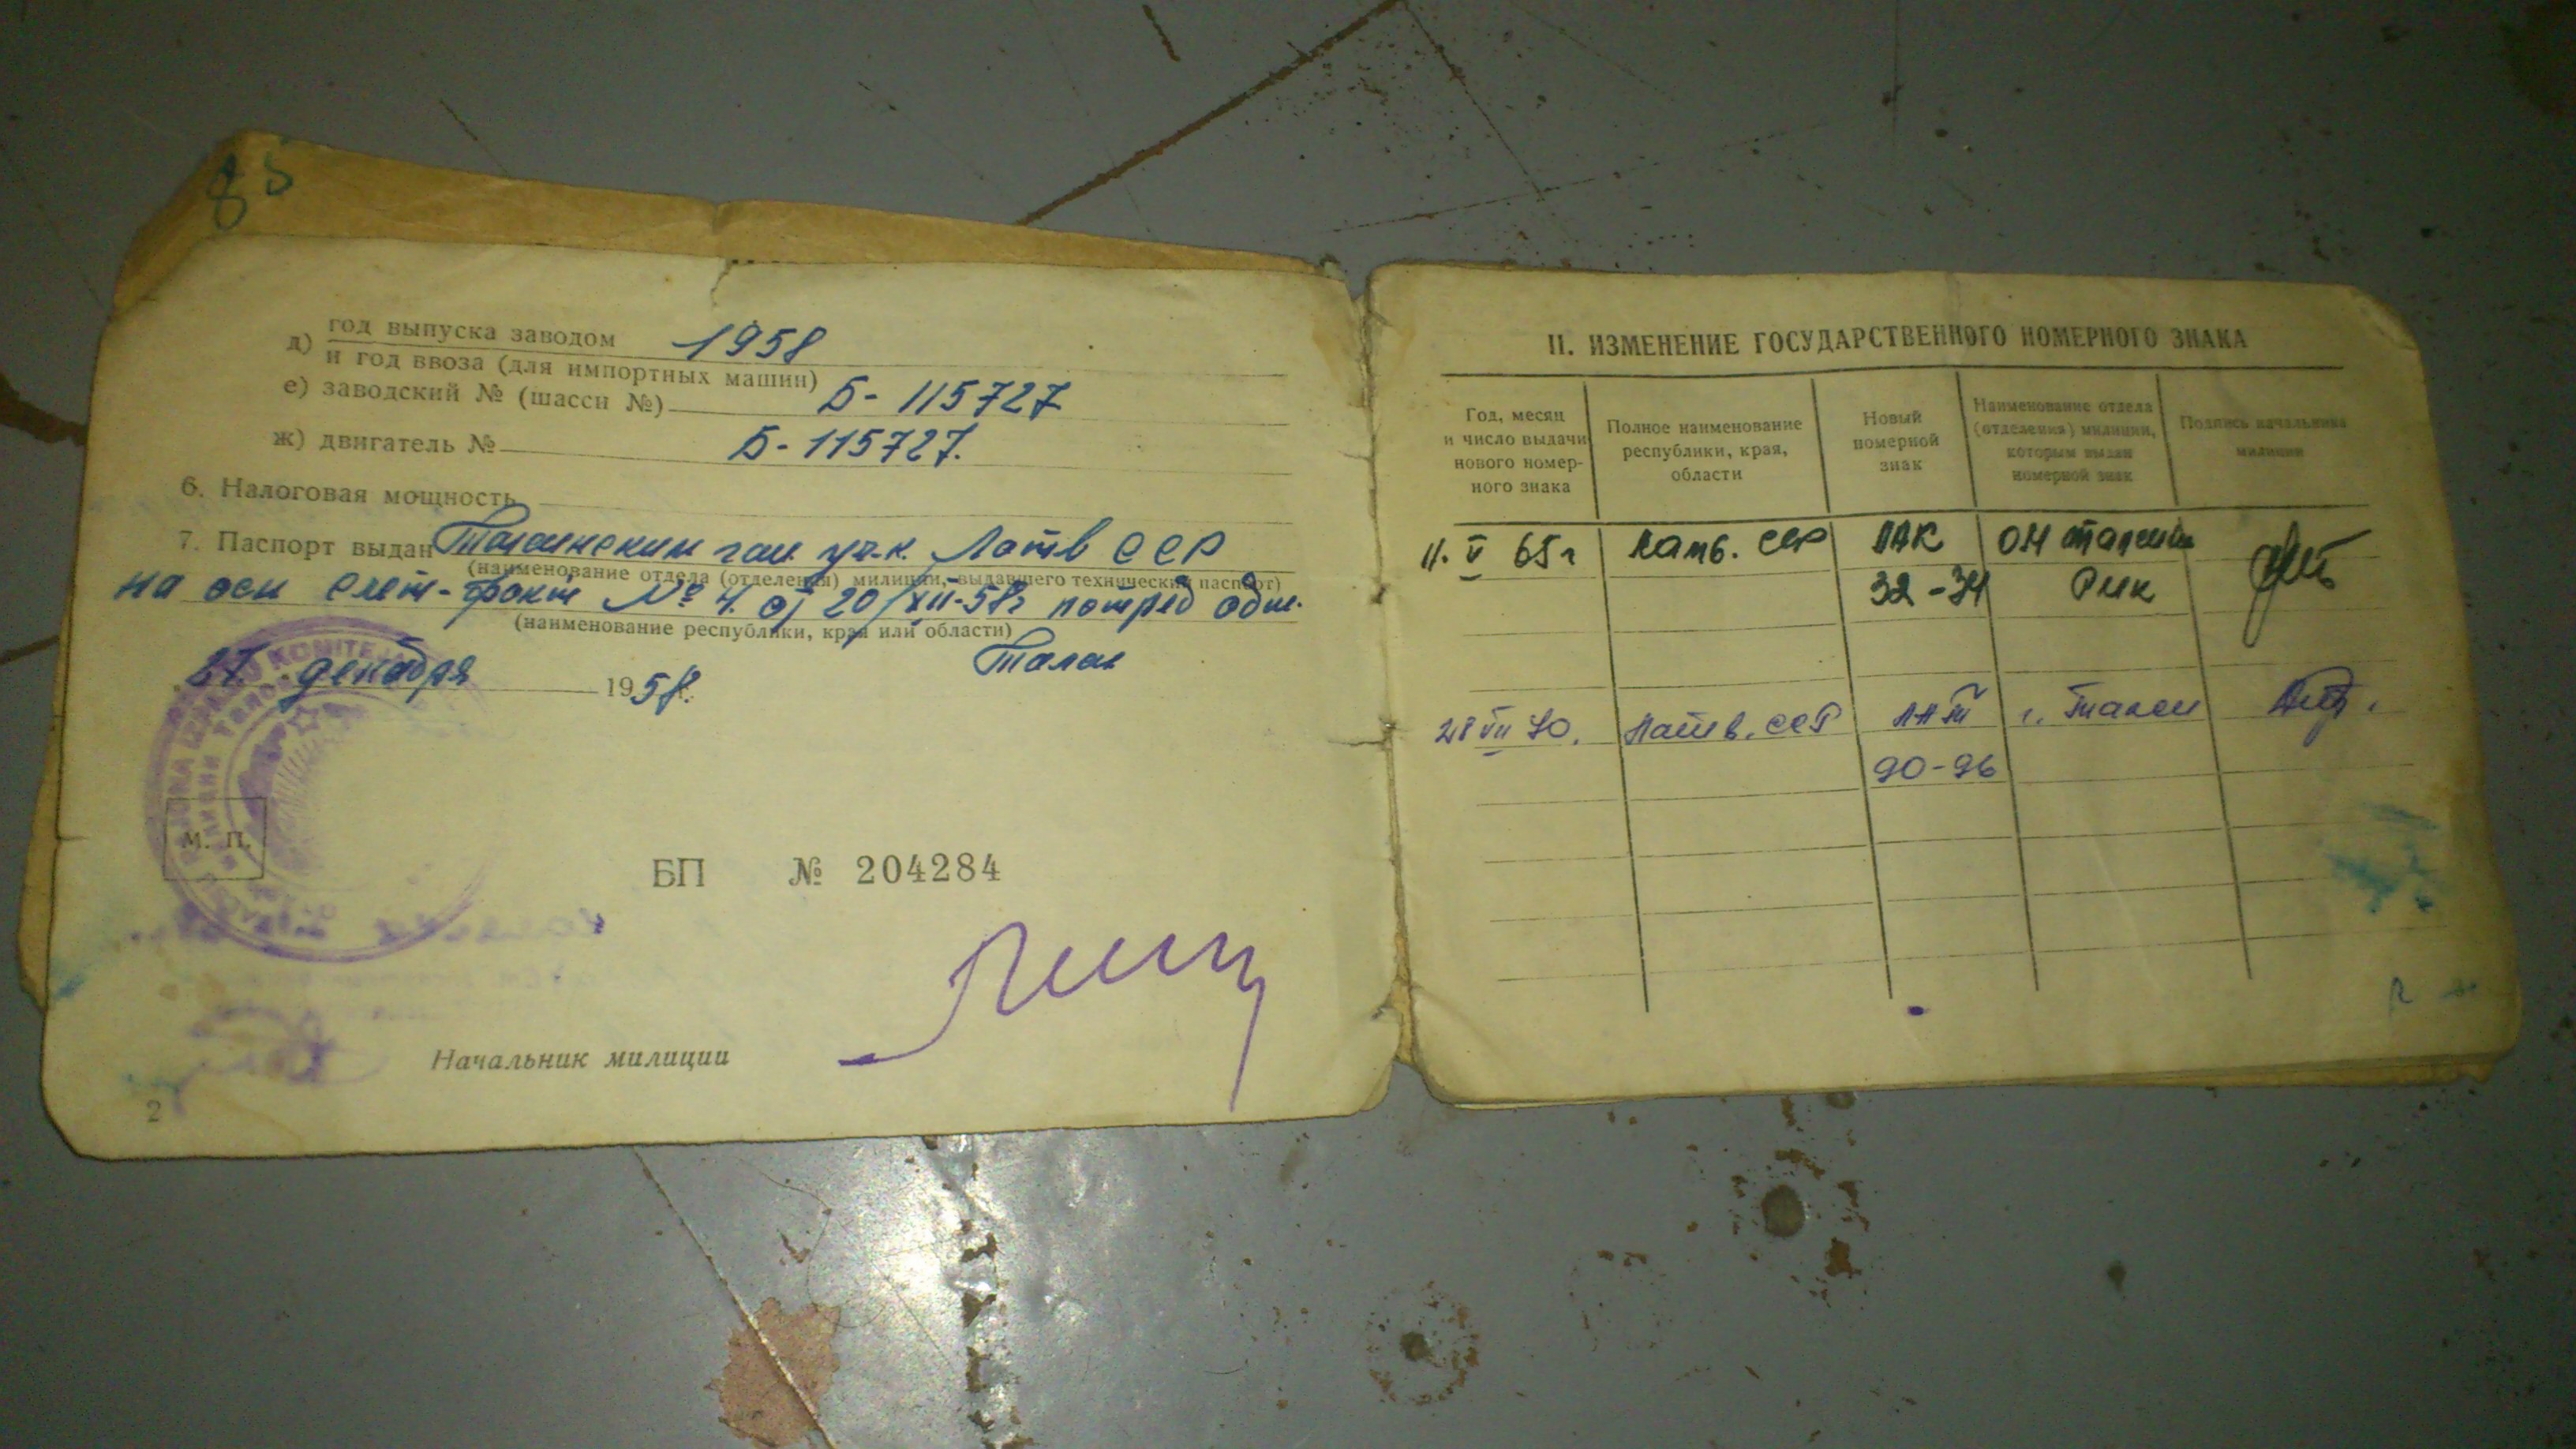 85
год выпуска заводом
д) 1958
и год ввоза (для импортных машин)
е) заводский № (шасси №) Б-115727
ж) двигатель № Б-115727.
6. Налоговая мощность
7. Паспорт выдан Латв ССР
(наименование отдела (отделения) милиции, выдавшего технический паспорт)
на осн счет-факт № 4 от 20/XII-58г
(наименование республики, края или области)
27. декабря 1958.
М. П.
БП № 204284
Начальник милиции
2
II. ИЗМЕНЕНИЕ ГОСУДАРСТВЕННОГО НОМЕРНОГО ЗНАКА
Год, месяц и число выдачи нового номерного знака
Полное наименование республики, края, области
Новый номерной знак
Наименование отдела (отделения) милиции, которым выдан номерной знак
Подпись начальника милиции
11. V 65г Латв. ССР ЛАК
32-34
28 VII 70. Латв. ССР г. Талси
90-96